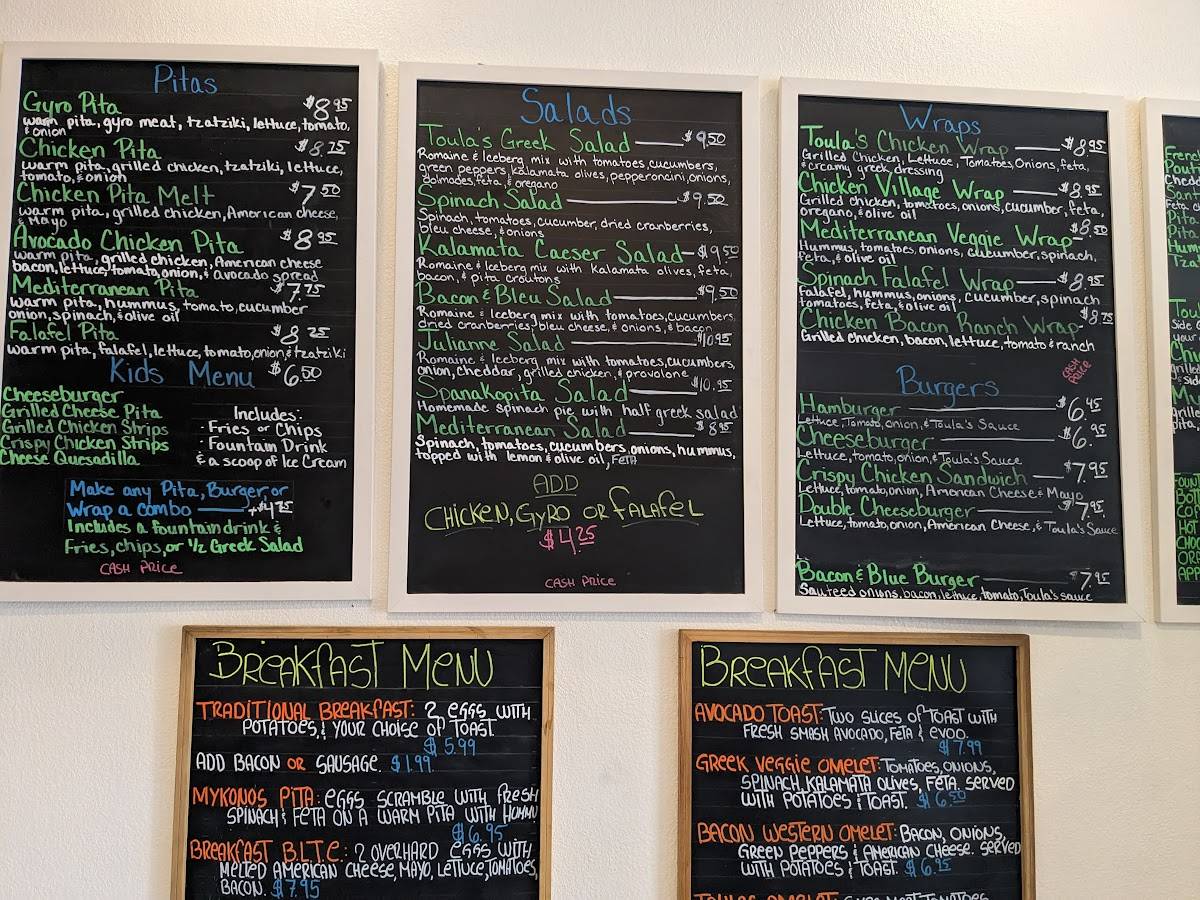 Pitas
Gyro Pita $8.95
warm pita, gyro meat, tzatziki, lettuce, tomato,
& onion
Chicken Pita $8.25
warm pita, grilled chicken, tzatziki, lettuce,
tomato, & onion
Chicken Pita Melt $7.50
warm pita, grilled chicken, American cheese,
& Mayo
Avocado Chicken Pita $8.95
warm pita, grilled chicken, American cheese
bacon, lettuce, tomato, onion, & avocado spread
Mediterranean Pita $7.75
warm pita, hummus, tomato, cucumber
onion, spinach, & olive oil
Falafel Pita $8.25
warm pita, falafel, lettuce, tomato, onion & tzatziki
Kids Menu $6.50
Cheeseburger
Grilled Cheese Pita
Grilled Chicken Strips
Crispy Chicken Strips
Cheese Quesadilla
Includes:
· Fries or Chips
· Fountain Drink
& a scoop of Ice Cream
Make any Pita, Burger, or
Wrap a combo — +$4.75
Includes a fountain drink &
Fries, chips, or 1/2 Greek Salad
CASH PRICE
Salads
Toula's Greek Salad — $9.50
Romaine & Iceberg mix with tomatoes, cucumbers,
green peppers, kalamata olives, pepperoncini, onions,
dolmades, feta, & oregano
Spinach Salad — $9.50
Spinach, tomatoes, cucumber, dried cranberries,
bleu cheese, & onions
Kalamata Caeser Salad — $9.50
Romaine & Iceberg mix with Kalamata olives, feta,
bacon, & pita croutons
Bacon & Bleu Salad — $9.50
Romaine & Iceberg mix with tomatoes, cucumbers,
dried cranberries, bleu cheese, & onions, & bacon
Julianne Salad — $10.95
Romaine & Iceberg mix with tomatoes, cucumbers,
onion, cheddar, grilled chicken, & provolone
Spanakopita Salad — $10.95
Homemade spinach pie, with half greek salad
Mediterranean Salad — $8.95
Spinach, tomatoes, cucumbers, onions, hummus,
topped with lemon & olive oil, FETA
ADD
CHICKEN, GYRO OR FALAFEL
$4.25
CASH PRICE
Wraps
Toula's Chicken Wrap — $8.95
Grilled Chicken, Lettuce, Tomatoes, Onions, feta,
& creamy greek dressing
Chicken Village Wrap — $8.95
Grilled chicken, tomatoes, onions, cucumber, feta,
oregano, & olive oil
Mediterranean Veggie Wrap — $8.50
Hummus, tomatoes, onions, cucumber, spinach,
feta, & olive oil
Spinach Falafel Wrap — $8.95
Falafel, hummus, onions, cucumber, spinach
tomatoes, feta, & olive oil
Chicken Bacon Ranch Wrap — $8.75
Grilled chicken, bacon, lettuce, tomato & ranch
CASH
PRICE
Burgers
Hamburger — $6.45
Lettuce, Tomato, onion, & Toula's Sauce
Cheeseburger — $6.95
Lettuce, tomato, onion, & Toula's Sauce
Crispy Chicken Sandwich — $7.95
Lettuce, tomato, onion, American Cheese & Mayo
Double Cheeseburger — $7.95
Lettuce, tomato, onion, American Cheese, & Toula's Sauce
Bacon & Blue Burger — $7.95
Sauteed onions, bacon, lettuce, tomato, Toula's sauce
BREAKFAST MENU
TRADITIONAL BREAKFAST: 2 EGGS WITH
POTATOES, & YOUR CHOISE OF TOAST.
$5.99
ADD BACON OR SAUSAGE. $1.99
MYKONOS PITA: EGGS SCRAMBLE WITH FRESH
SPINACH & FETA ON A WARM PITA WITH HUMMU
$6.95
BREAKFAST B.L.T.E.: 2 OVERHARD EGGS WITH
MELTED AMERICAN CHEESE, MAYO, LETTUCE, TOMATOES,
BACON. $7.95
BREAKFAST MENU
AVOCADO TOAST: TWO SLICES OF TOAST WITH
FRESH SMASH AVOCADO, FETA & EVOO.
$7.99
GREEK VEGGIE OMELET: TOMATOES, ONIONS,
SPINACH, KALAMATA OLIVES, FETA. SERVED
WITH POTATOES & TOAST. $6.50
BACON WESTERN OMELET: BACON, ONIONS,
GREEN PEPPERS & AMERICAN CHEESE. SERVED
WITH POTATOES & TOAST. $6.95